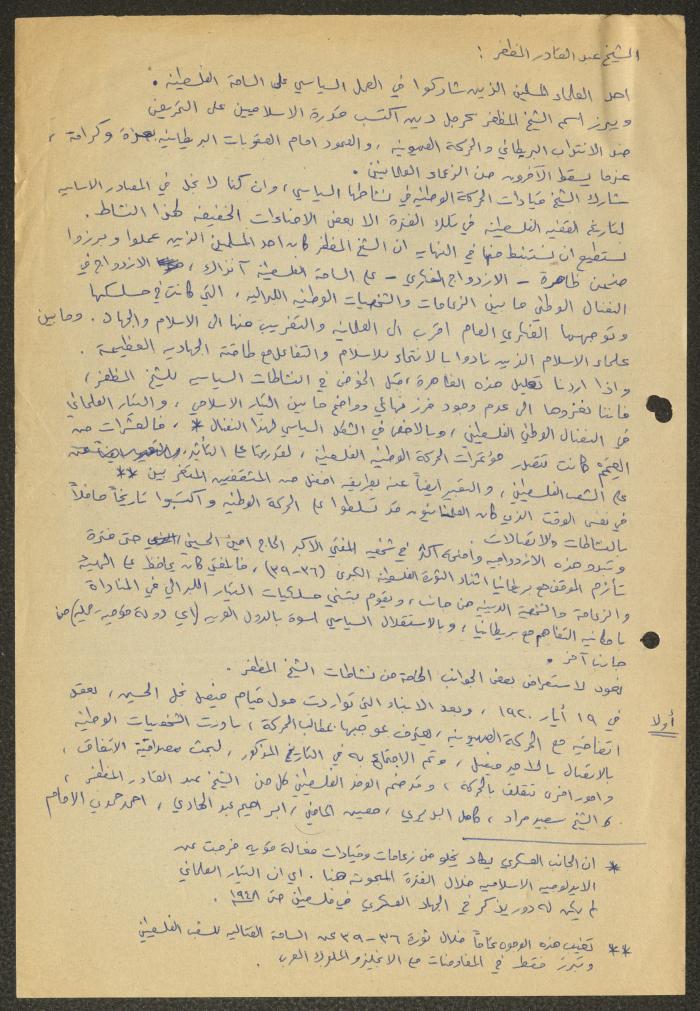 الشيخ عبد القادر المظفر :
احد العلماء المسلمين الذين شاركوا في العمل السياسي على الساحة الفلسطينية .
ويبرز اسم الشيخ المظفر كرجل دين اكتسب قدرة الاسلاميين على التحريض
ضد الانتداب البريطاني والحركة الصهيونية ، والصمود امام العقوبات البريطانية بعزة وكرامة ،
عندما يسقط الآخرون من الزعماء العلمانيين .
شارك الشيخ قيادات الحركة الوطنية في نشاطها السياسي ، وان كنا لا نجد في المصادر الاساسية
لتاريخ القضية الفلسطينية في تلك الفترة الا بعض الاضاءات الخفيفة لهذا النشاط .
نستطيع ان نستنبط منها في النهاية ان الشيخ المظفر كان احد المسلمين الذين عملوا وبرزوا
ضمن ظاهرة - الازدواج الفكري - على الساحة الفلسطينية آنذاك ، الازدواج في
النضال الوطني ما بين الزعامات والشخصيات الوطنية اللبرالية ، التي كانت في مسلكها
وتوجهها الفكري العام اقرب الى العلمانية والتغريب منها الى الاسلام والجهاد . وما بين
علماء الاسلام الذين نادوا بالانتماء للاسلام والتفاعل مع طاقته الجهادية العظيمة .
واذا اردنا تعليل هذه الظاهرة ، قبل الخوض في النشاطات السياسية للشيخ المظفر ،
فاننا نعزوها الى عدم وجود فرز نهائي وواضح ما بين التيار الاسلامي ، والتيار العلماني
في النضال الوطني الفلسطيني ، وبالاخص في الشكل السياسي لهذا النضال * ، فالعشرات من
العمم كانت تتصدر مؤتمرات الحركة الوطنية الفلسطينية ، لقدرتها على التأثير
على الشعب الفلسطيني ، والتعبير ايضاً عنه بطريقة افضل من المثقفين المتغربين **
في نفس الوقت الذي كان العلمانيون قد تسلطوا على الحركة الوطنية واكتسبوا تاريخاً حافلاً
بالنشاطات والاتصالات
وتبدو هذه الازدواجية واضحة اكثر في شخصية المفتي الاكبر الحاج امين الحسيني حتى فترة
تأزم الموقف مع بريطانيا اثناء الثورة الفلسطينية الكبرى (٣٦-٣٩) ، فالمفتي كان يحافظ على الهيبة
والزعامة والشخصية الدينية من جانب ، ويقوم بتبني مسلكيات التيار اللبرالي في المناداة
بامكانية التفاهم مع بريطانيا ، وبالاستقلال السياسي اسوة بالدول العربية (اي دولة قومية ) من
جانب آخر .
نعود لاستعراض بعض الجوانب الخاصة من نشاطات الشيخ المظفر .
أولا
في ١٩ أيار ١٩٢٠ ، وبعد الانباء التي تواردت حول قيام فيصل نجل الحسين ، بعقد
اتفاقية مع الحركة الصهيونية ، يعترف بموجبها بمطالب الحركة ، بادرت الشخصيات الوطنية
بالاتصال بالامير فيصل ، وتم الاجتماع به في التاريخ المذكور ، لبحث مصداقية الاتفاق ،
وامور اخرى تتعلق بالحركة ، وقد ضم الوفد الفلسطيني كل من الشيخ عبد القادر المظفر ،
الشيخ سعيد مراد ، كامل البديري ، معين الماضي ، ابراهيم عبد الهادي ، احمد حمدي الامام
* ان الجانب العسكري يكاد يخلو من زعامات وقيادات فعالة قوية خرجت عن
الايدلوجية الاسلامية خلال الفترة المبحوثة هنا . اي ان التيار العلماني
لم يكن له دور يذكر في الجهاد العسكري في فلسطين حتى ١٩٤٨ .
** تغيب هذه الوجوه تماماً خلال ثورة ٣٦-٣٩ عن الساحة القتالية للشعب الفلسطيني
وتبرز فقط في المفاوضات مع الانجليز والملوك العرب .